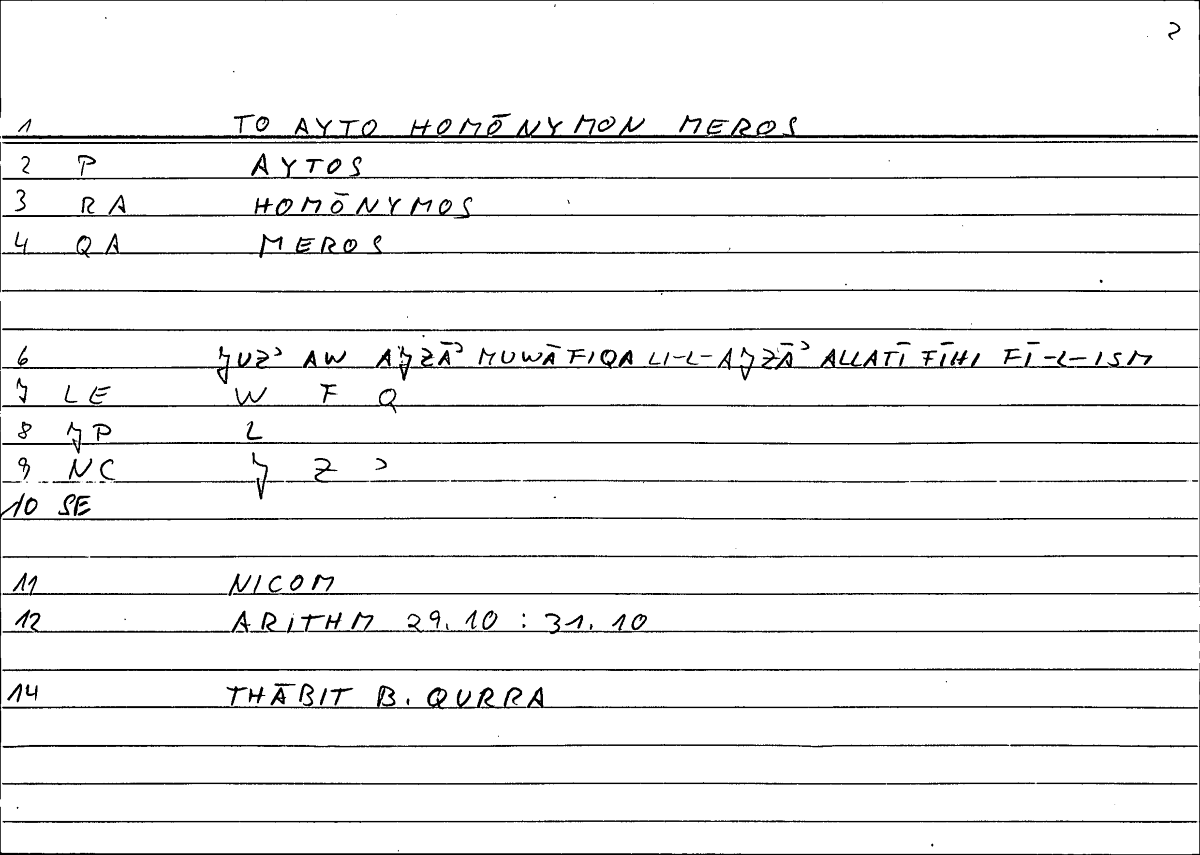 2
1 TO AYTO HOMŌNYMON MEROS
2 P AYTOS
3 RA HOMŌNYMOS
4 QA MEROS
6 ȷUZʾ AW AȷZĀʾ MUWĀFIQA LI-L-AȷZĀʾ ALLATĪ FĪHI FĪ-L-ISM
7 LE W F Q
8 ȷP L
9 NC ȷ Z ʾ
10 SE
11 NICOM
12 ARITHM 29.10 : 31.10
14 THĀBIT B. QURRA